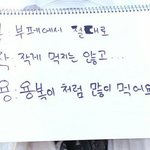 뷔. 부페에서 절대로
작. 작게 먹지는 않고....
용. 용복이 처럼 많이 먹어요